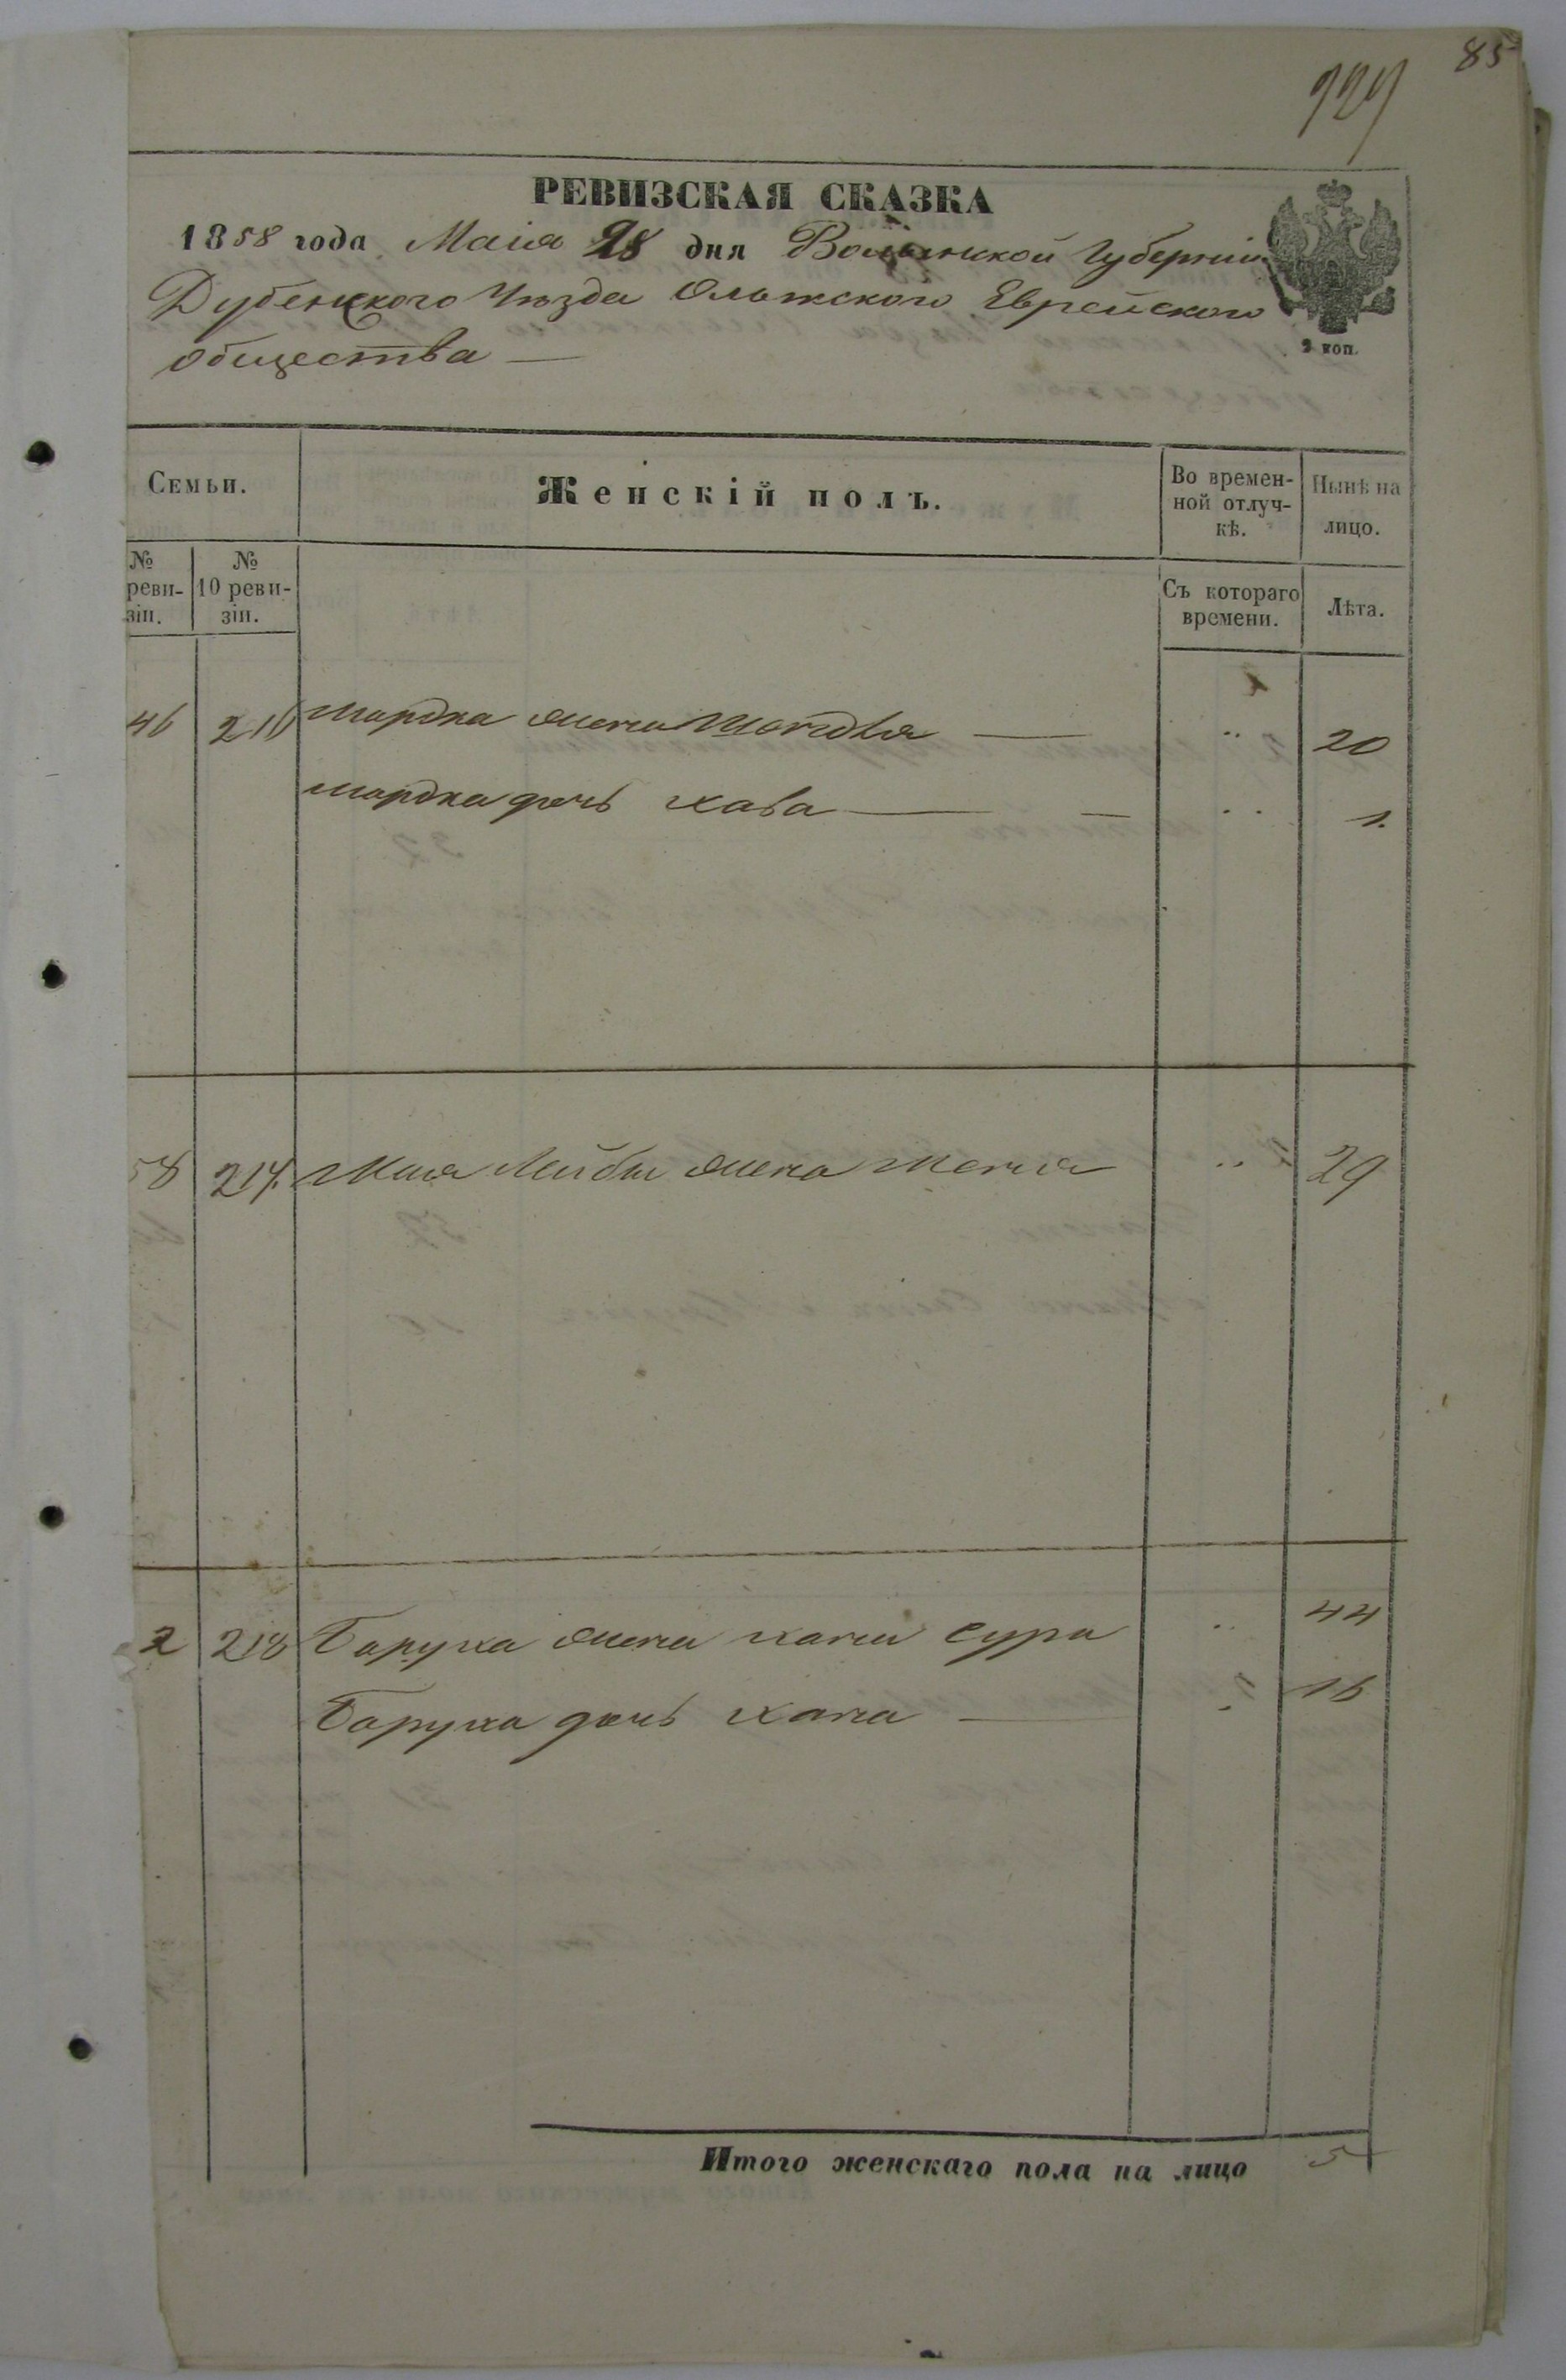 85
929
РЕВИЗСКАЯ СКАЗКА
1858 года Маія 28 дня Волынской Губерніи
Дубенского Уѣзда Олыкского Еврейского
общества —
2 коп.
Семьи.
Женскій полъ.
Во времен-
ной отлуч-
кѣ.
Нынѣ на
лицо.
№
реви-
зіи.
№
10 реви-
зіи.
Съ котораго
времени.
Лѣта.
46 216 Мордка жена —— „ 20
Мордка дочь Хава —— „ 1.
58 217. Лейбы жена Меня „ 29
2 218 Баруха жена Хана Сура „ 44
Баруха дочь Хана —— „ 16
Итого женскаго пола на лицо 5